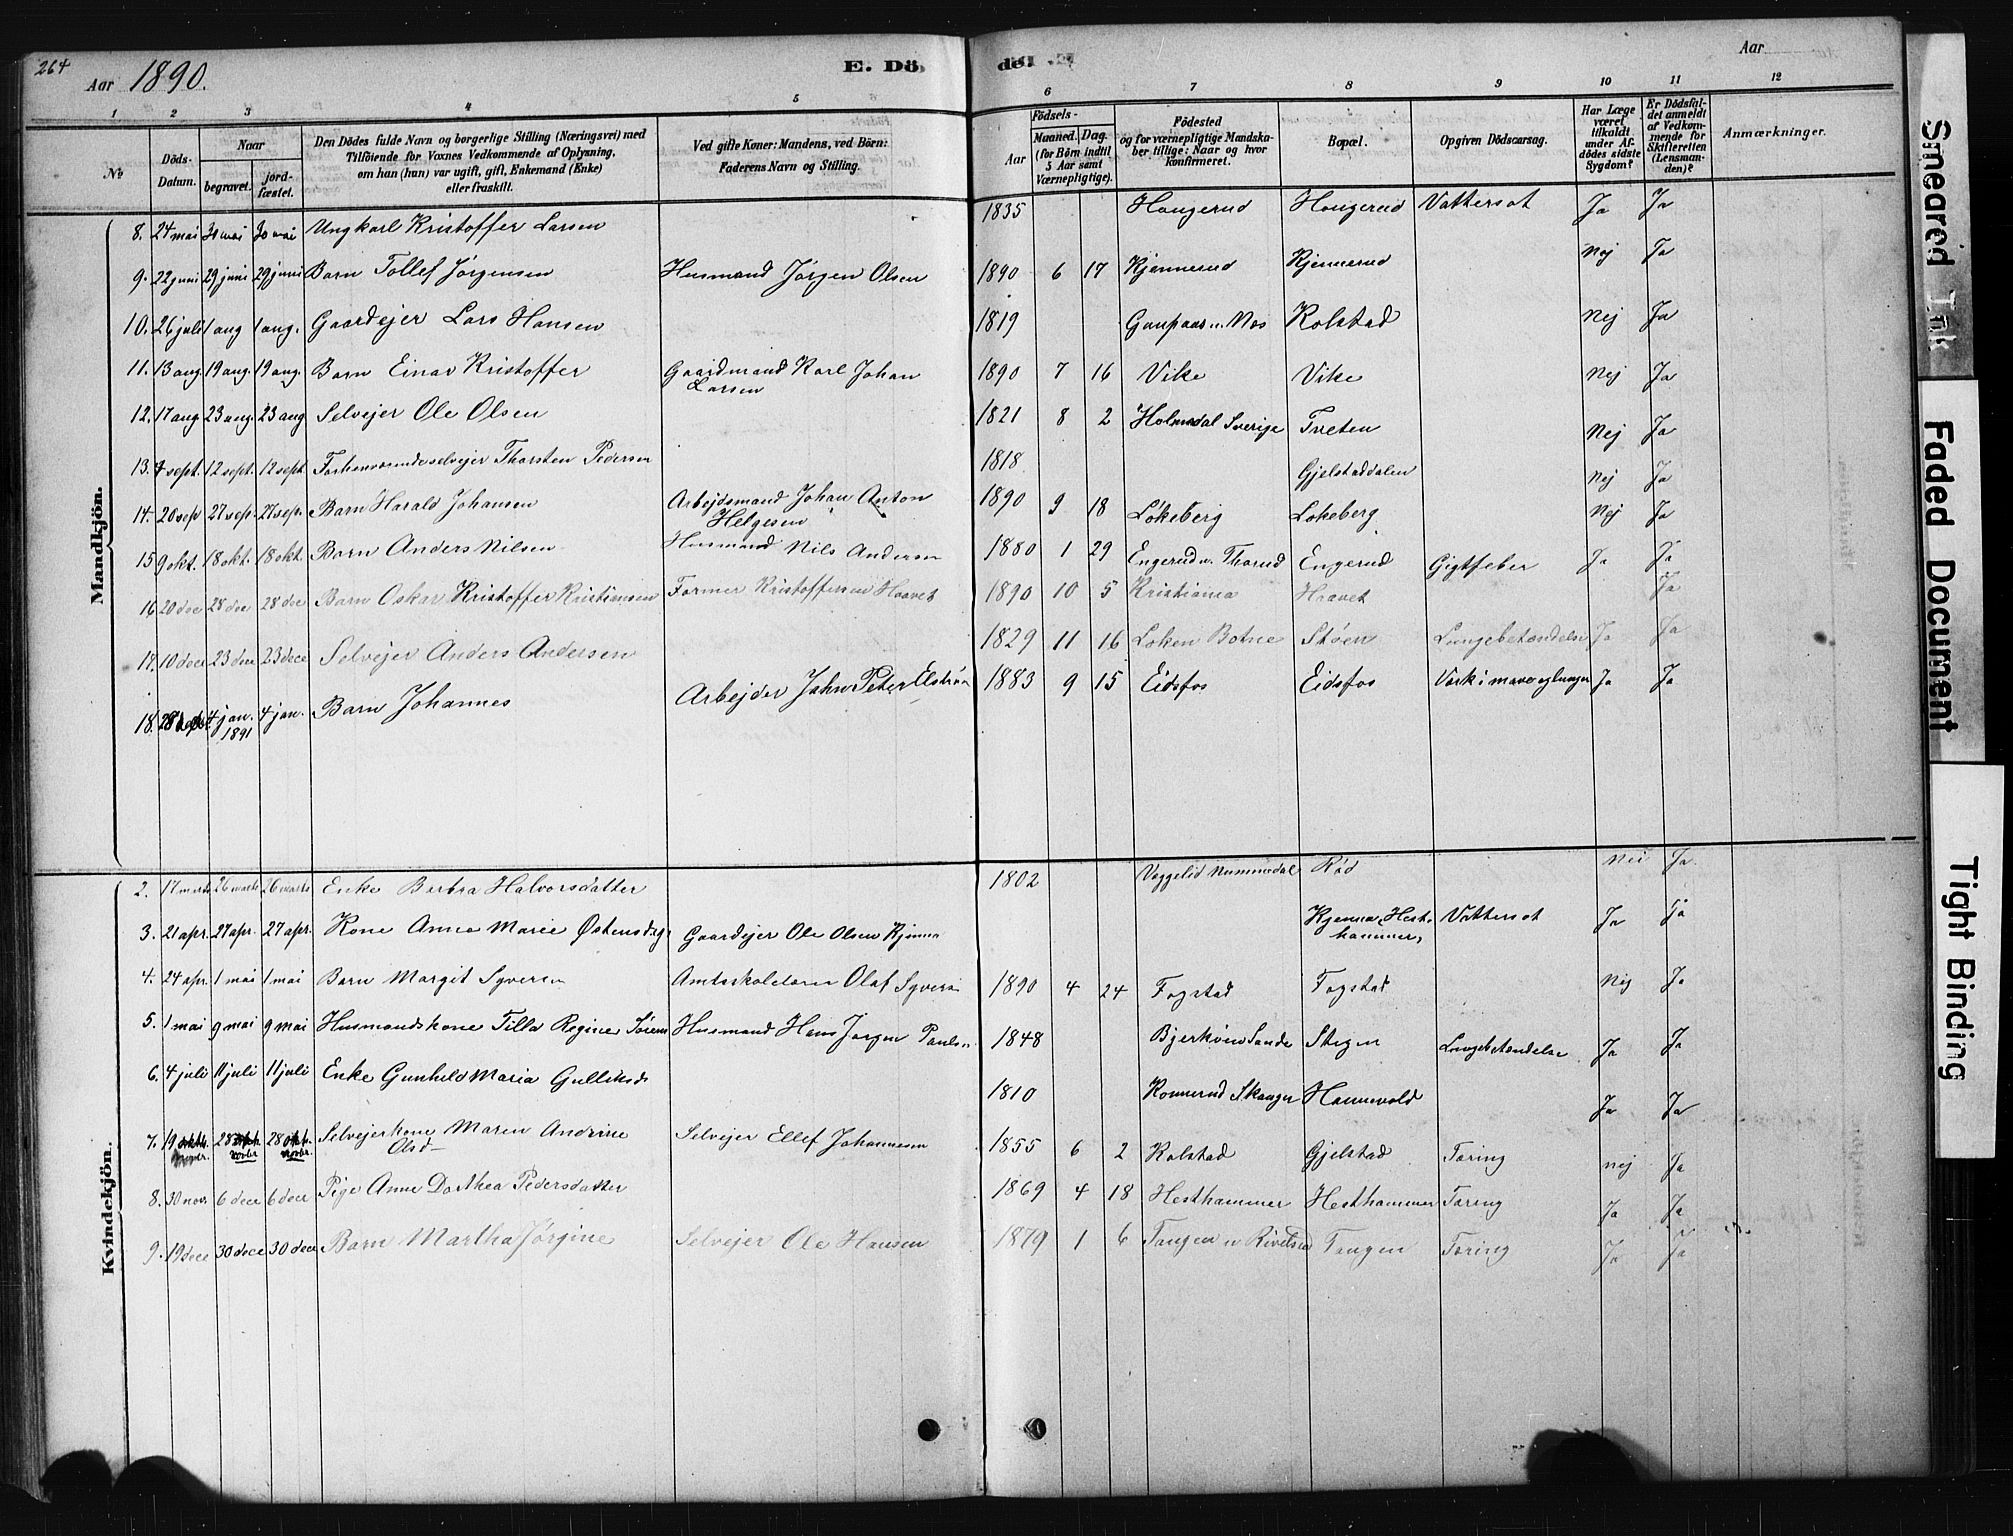 264
Aar 1890.
E. Dö
de.
Aar
1 2 3 4 5 6 7 8 9 10 11 12
№
Döds-Datum.
Naar
begravet.
jordfæstet.
Den Dödes fulde Navn og borgerlige Stilling (Næringsvei) med
Tilföiende for Voxnes Vedkommende af Oplysning,
om han (hun) var ugift, gift, Enkemand (Enke)
eller fraskilt.
Ved gifte Koner: Mandens, ved Börn:
Faderens Navn og Stilling.
Födsels-
Aar
Maaned. Dag.
(for Börn indtil
5 Aar samt
Værnepligtige).
Födested
og for værnepligtige Mandska-
ber tillige: Naar og hvor
konfirmeret.
Bopæl.
Opgiven Dödsaarsag.
Har Læge
været
tilkaldt
under Af-
dödes sidste
Sygdom?
Er Dödsfal-
det anmeldt
af Vedkom-
mende for
Skifteretten
(Lensman-
den)?
Anmærkninger.
Mandkjön.
8. 24 mai 30 mai 30 mai Ungkarl Kristoffer Larsen 1835 Haugerud Haugerud Vattersot Ja Ja
9. 22 juni 29 juni 29 juni Barn Tollef Jørgensen Husmand Jørgen Olsen 1890 6 17 Kjennerud Kjennerud Nej Ja
10. 26 juli 1 aug 1 aug. Gaardejer Lars Hansen 1819 Gaupaas Kolstad Nej Ja
11. 13 aug 19 aug. 19 aug. Barn Einar Kristoffer Gaardmand Karl Johan
Larsen 1890 7 16 Vike Vike Nej Ja
12. 17 aug 23 aug. 23 aug Selvejer Ole Olsen 1821 8 2 Holmedal Sverige Tveten Nej Ja
13. 7 sept. 12 sept. 12 sept. Forhenværendeselvejer Thorsten Pedersen 1818 Gjelstaddalen Nej Ja
14. 20 sep 27 sep. 27 sep. Barn Harald Johansen Arbejdsmand Johan Anton
Helgesen 1890 9 18 Løkeberg Løkeberg Nej Ja
15 9 okt. 18 okt. 18 okt. Barn Anders Nilsen Husmand Nils Andersen 1880 1 29 Engerud v. Thorud Engerud Gigtfeber Ja Ja
16 20 dec 28 dec 28 dec Barn Oskar Kristoffer Kristiansen Former Kristoffersen Haavet 1890 10 5 Kristiania Haavet Ja
17. 10 dece 23 dece 23 dece Selvejer Anders Andersen 1829 11 16 Løken Botne Støen Lungebetændelse Ja Ja
18. 28 4 jan.
1891 4 jan. Barn Johannes Arbejder John Peter Elstrøm 1883 9 15 Eidsfos Eidsfos Værk i mave og lunger Ja Ja
Kvindekjön.
2. 17 marts 26 marts 26 marts Enke Berthea Halvorsdatter 1802 Veggelid Nummedal Rød Nei Ja
3. 21 apr. 27 apr. 27 apr. Kone Anne Marie Østensdg. Gaardejer Ole Olsen Kjenna Kjenna, Hest-
hammer, Vattersot Ja Ja
4. 24 apr. 1 mai 1 mai Barn Margit Syversen Amtsskolelærer Olaf Syversen 1890 4 24 Fogstad Fogstad Nej Ja
5. 1 mai 9 mai 9 mai Husmandskone Tilla Regine Sørens Husmand Hans Jørgen Paulsen 1848 Bjerkøen Sande Lungebetændelse Ja Ja
6. 4 juli 11 juli 11 juli Enke Gunhild Maria Gulliksd 1810 Konnerud Skauger Hannevold Ja Ja
7. 19 okt.
novbr. 28
novbr 28 okt.
novbr. Selvejerkone Maren Andrine
Olsd Selvejer Ellef Johannesen 1855 6 2 Kolstad Gjelstad Tæring nej Ja
8. 30 nov. 6 dece 6 dece Pige Anne Dorthea Pedersdatter 1869 4 18 Hesthammer Hesthammer Tæring Ja Ja
9. 19 dece 30 dece 30 dece Barn Martha Jørgine Selvejer Ole Hansen 1879 1 6 Tangen Tangen Tæring Ja Ja
Smeared Ink
Faded Document
Tight Binding